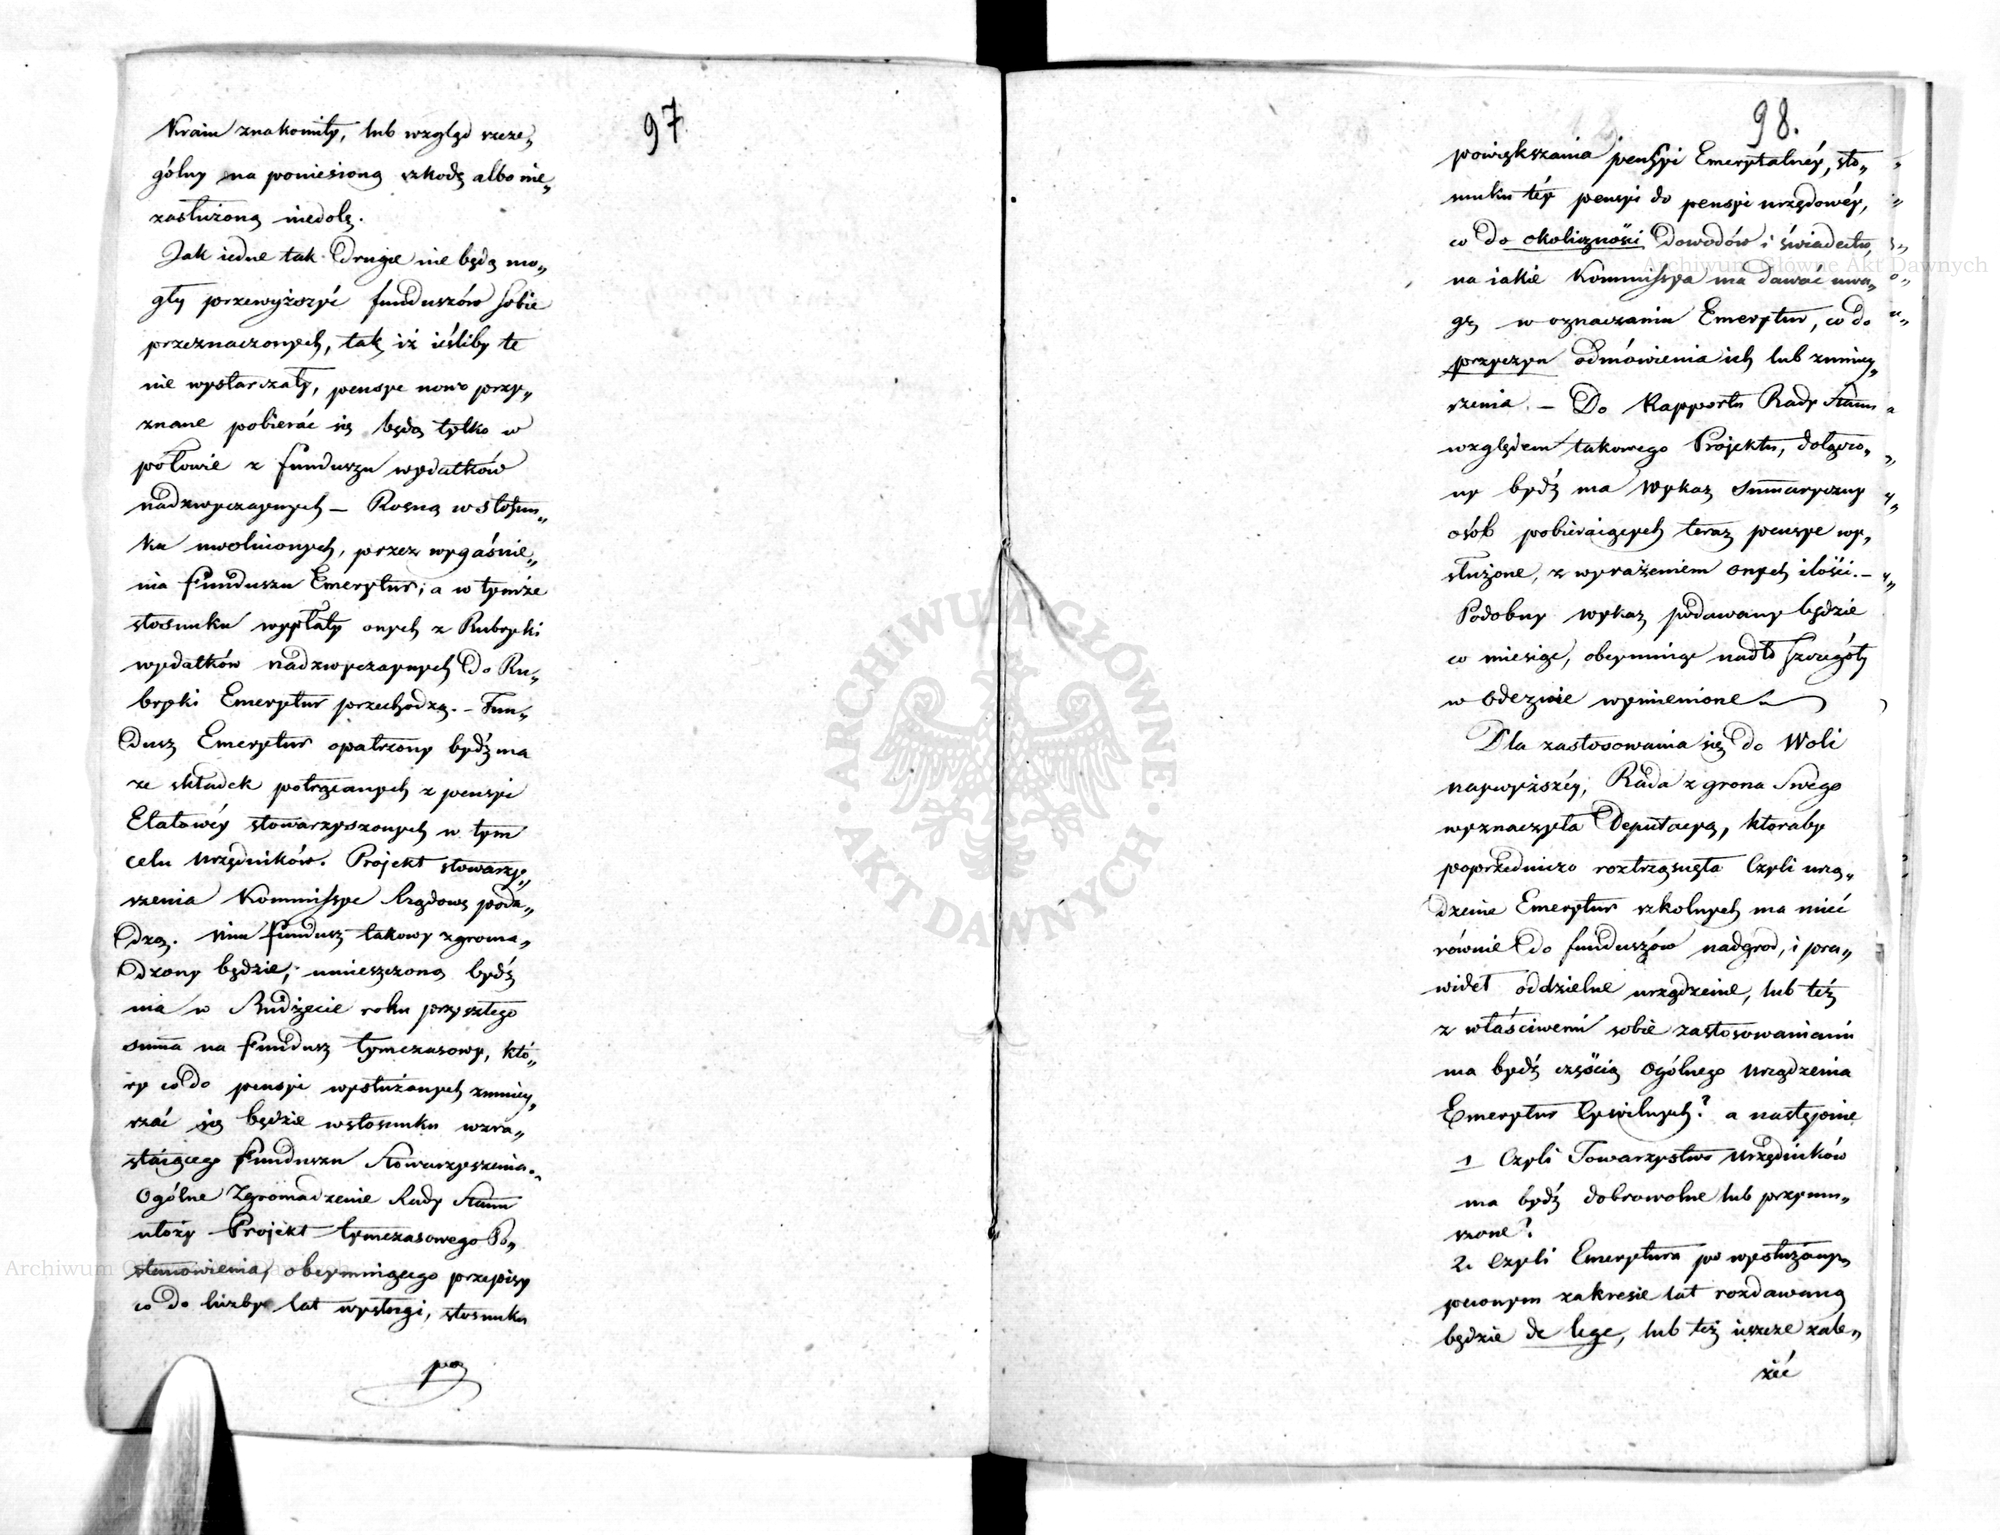 97
Kraiu znakomity, lub wzgląd szcze„
gólny na poniesioną szkodę albo nie„
zasłużoną niedolę.
Jak iedne tak drugie nie będą mo„
gły przewyższyć funduszów sobie
przeznaczonych, tak iż ieśliby te
nie wystarczały, pensye nowo przy„
znane pobierać się będą tylko w
połowie z funduszu wydatków
nadzwyczaynych — Rosną w stosun„
ku uwolnionych, przez wygaśnie„
nia funduszu Emerytur; a w tymże
stosunku wypłaty onych z Rubryki
wydatków nadzwyczaynych do Ru„
bryki Emerytur przechodzą. — Fun„
dusz Emerytur opatrzony bydź ma
ze składek potrącanych z pensyi
Etatowéy stowarzyszonych w tym
celu Urzędników. Projekt stowarzy„
szenia Kommissye Rządowe poda„
dzą. Nim fundusz takowy zgroma„
dzony będzie, umieszczoną bydź
ma w Budżecie roku przyszłego
summa na fundusz tymczasowy, któ„
ry co do pensyi wysłużanych zmniey„
szać się będzie w stosunku wzra„
staiącego funduszu Stowarzyszenia.
Ogólne Zgromadzenie Rady Stanu
ułoży Projekt tymczasowego Po„
stanowienia, obeymuiącego przepisy
co do liczby lat wysługi, stosunku
po„
98.
powiększania pensyi Emerytalnéy, sto„
sunku téy pensyi do pensyi urzędowéy,
co do okoliczności dowodów i świadectw,
na iakie Kommissya ma dawać uwa„
gę w oznaczaniu Emerytur, co do
przyczyn odmówienia ich lub zmniey„
szenia. — Do Rapportu Rady Stanu
względem takowego Projektu, dołączo„
ny bydź ma Wykaz Summaryczny
osób pobieraiących teraz pensye wy„
służone, z wyrażeniem onych ilości. —
Podobny wykaz podawany będzie
co miesiąc, obeymuiąc nadto szczegóły
w Odezwie wymienione
Dla zastosowania się do Woli
naywyższéy, Rada z grona Swego
wyznaczyła Deputacyą, któraby
poprzedniczo roztrząsnęła Czyli urzą„
dzenie Emerytur szkolnych ma mieć
równie do funduszów nadgród, i pra„
wideł oddzielne urządzenie, lub też
z właściwemi sobie zastosowaniami
ma bydź częścią Ogólnego urządzenia
Emerytur Cywilnych? a następnie
1 Czyli Towarzystwo Urzędników
ma bydź dobrowolne lub przymu„
szone?
2. Czyli Emerytura po wysłużonym
pewnym zakresie lat rozdawaną
będzie de lege, lub też ieszcze zale„
żéć